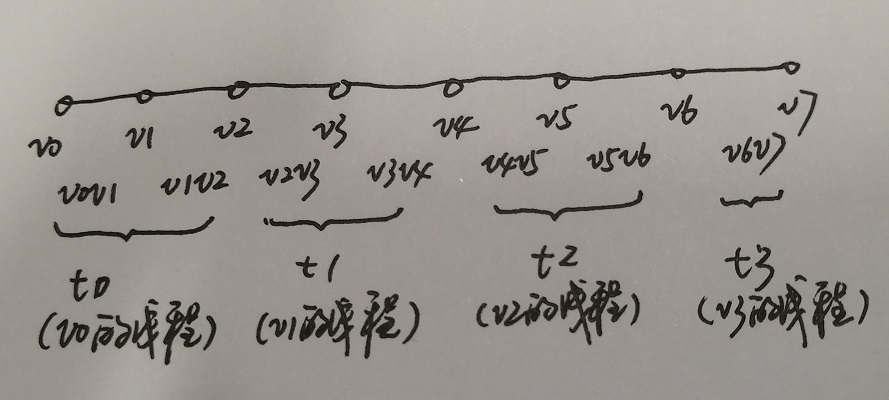 v0 v1 v2 v3 v4 v5 v6 v7
v0v1 v1v2 v2v3 v3v4 v4v5 v5v6 v6v7
t0 t1 t2 t3
(v0的线程) (v1的线程) (v2的线程) (v3的线程)